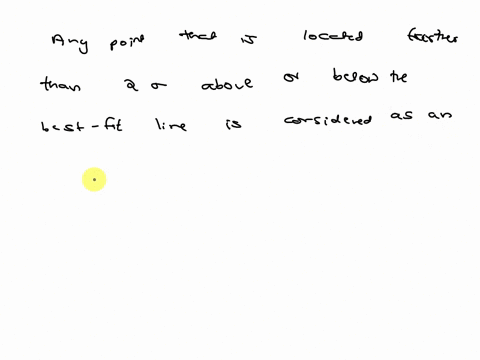 Any point that is located farther
than 2 σ above or below the
best-fit line is considered as an